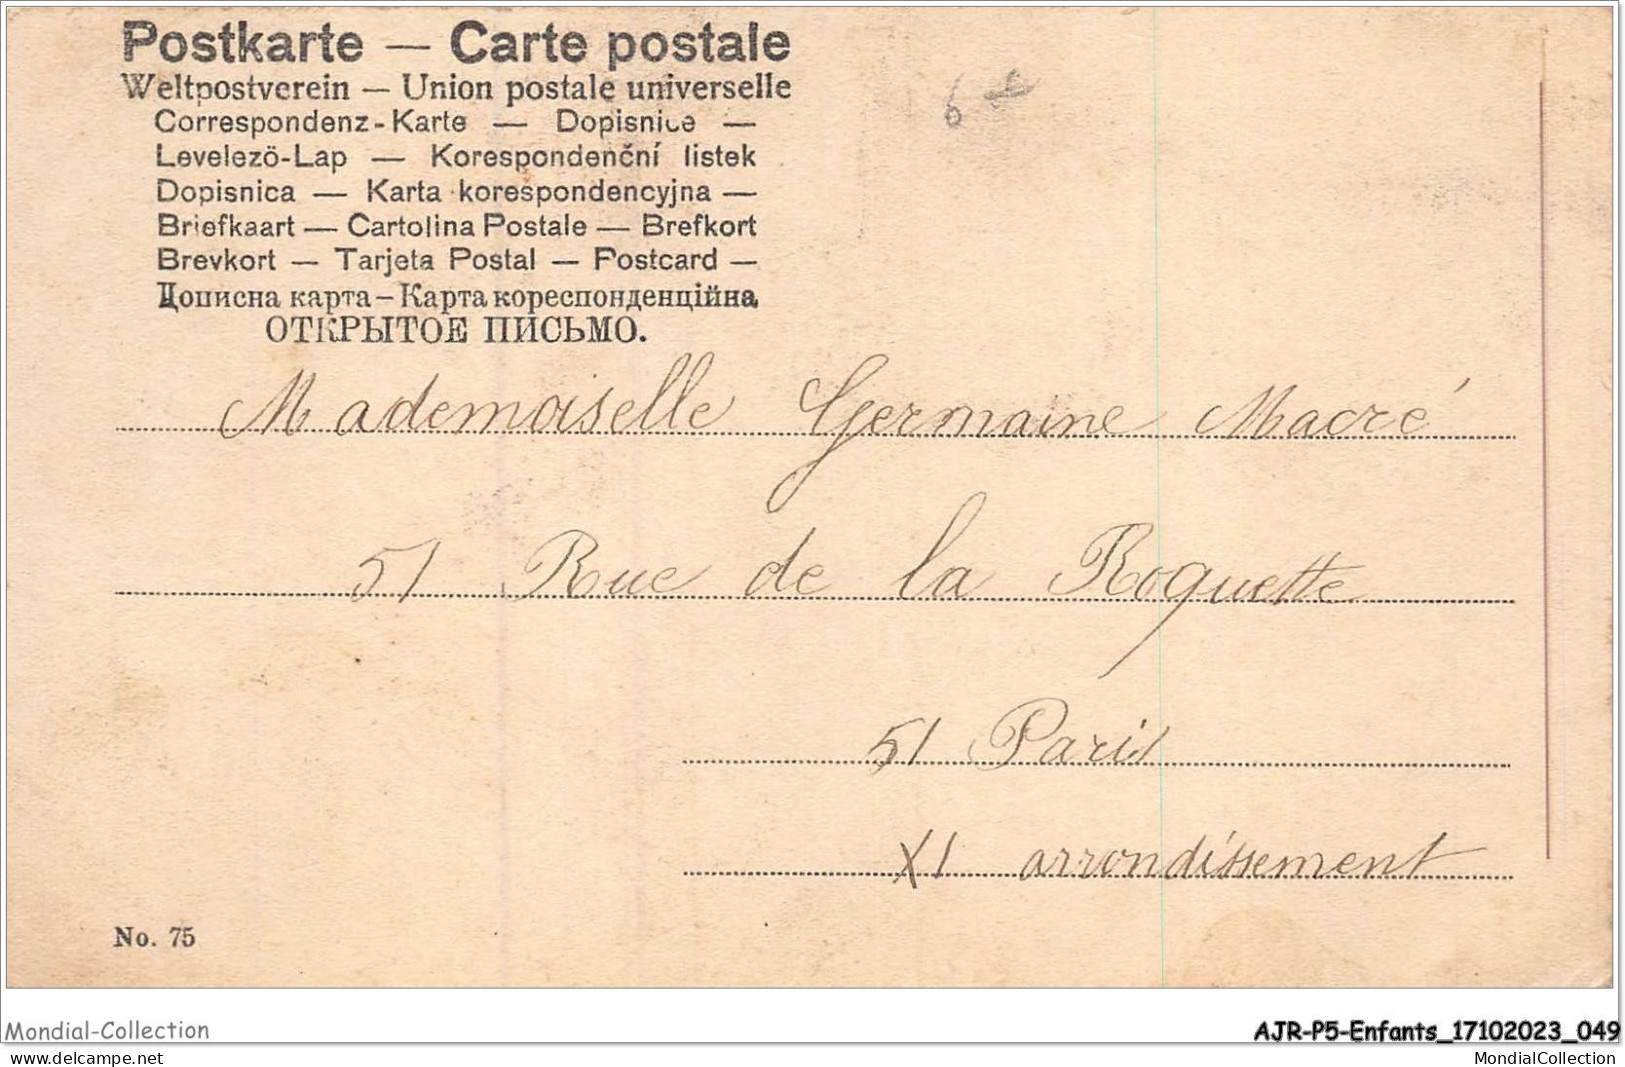 Postkarte — Carte postale
Weltpostverein — Union postale universelle
Correspondenz-Karte — Dopisnice —
Levelezö-Lap — Korespondenční listek
Dopisnica — Karta korespondencyjna —
Briefkaart — Cartolina Postale — Brefkort
Brevkort — Tarjeta Postal — Postcard —
Дописна карта – Карта кореспонденційна
ОТКРЫТОЕ ПИСЬМО.
Mademoiselle Germaine Macré
51 Rue de la Roquette
51 Paris
XI arrondissement
No. 75
Mondial-Collection
AJR-P5-Enfants_17102023_049
www.delcampe.net
MondialCollection